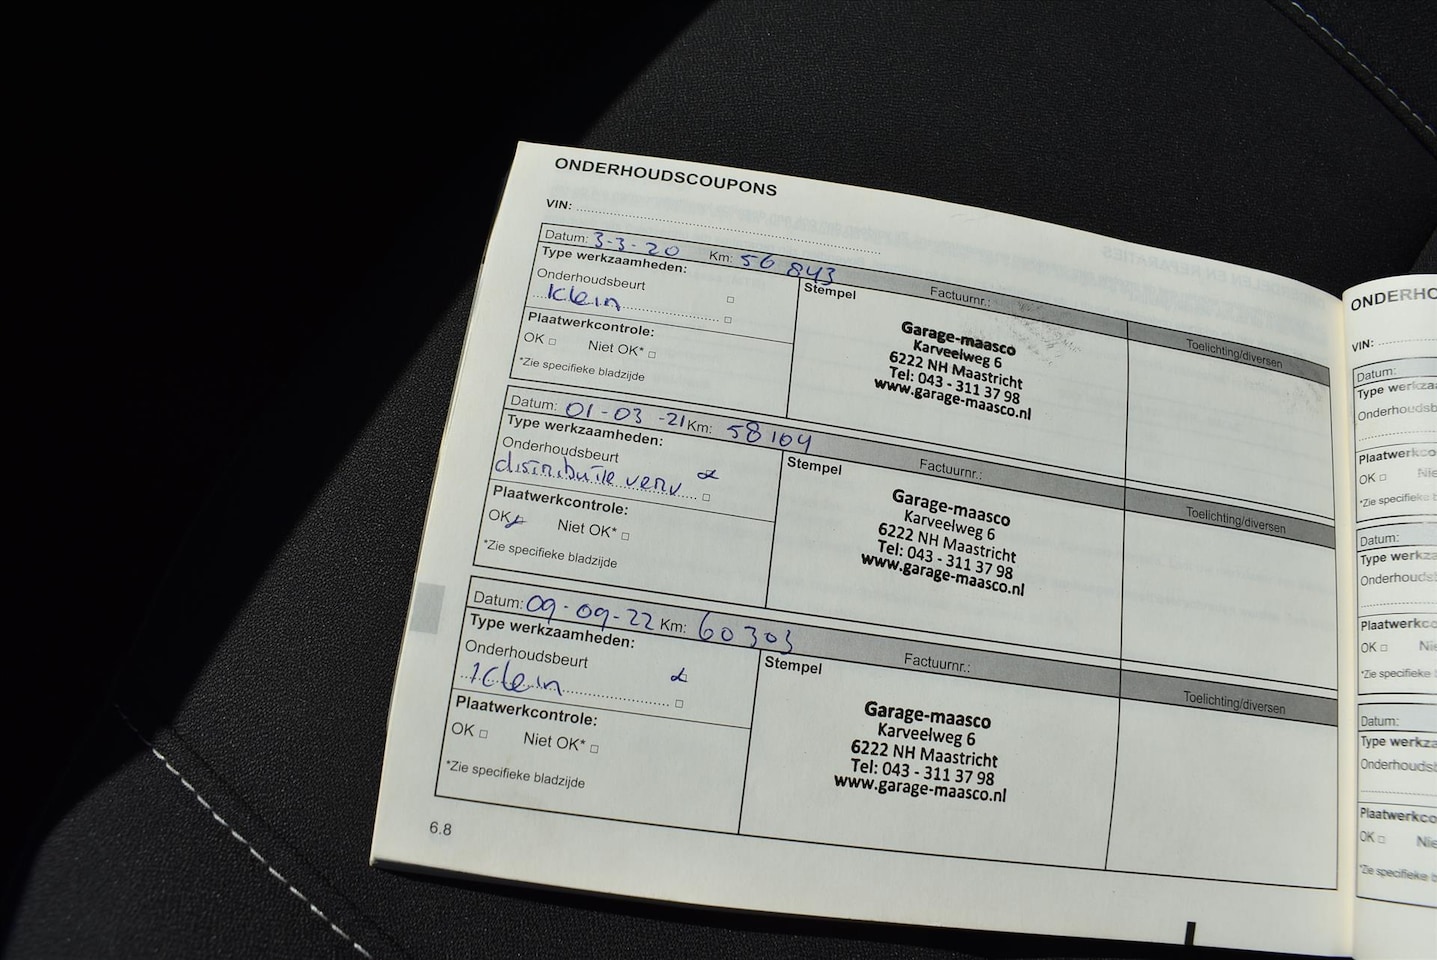 ONDERHOUDSCOUPONS
VIN:
Datum: 3-3-20 Km: 56 843
Type werkzaamheden:
Onderhoudsbeurt
Klein
Plaatwerkcontrole:
OK □ Niet OK* □
*Zie specifieke bladzijde
Stempel Factuurnr.:
Garage-maasco
Karveelweg 6
6222 NH Maastricht
Tel: 043 - 311 37 98
www.garage-maasco.nl
Toelichting/diversen
Datum: 01-03-21 Km: 58104
Type werkzaamheden:
Onderhoudsbeurt
distributie verv
Plaatwerkcontrole:
OK Niet OK* □
*Zie specifieke bladzijde
Stempel Factuurnr.:
Garage-maasco
Karveelweg 6
6222 NH Maastricht
Tel: 043 - 311 37 98
www.garage-maasco.nl
Toelichting/diversen
Datum: 09-09-22 Km: 60303
Type werkzaamheden:
Onderhoudsbeurt
Klein
Plaatwerkcontrole:
OK □ Niet OK* □
*Zie specifieke bladzijde
Stempel Factuurnr.:
Garage-maasco
Karveelweg 6
6222 NH Maastricht
Tel: 043 - 311 37 98
www.garage-maasco.nl
Toelichting/diversen
6.8
ONDERHO
VIN:
Datum:
Type werkza
Onderhoudsb
Plaatwerkco
OK □ Nie
*Zie specifieke b
Datum:
Type werkza
Onderhoudsb
Plaatwerkco
OK □ Nie
*Zie specifieke b
Datum:
Type werkza
Onderhoudsb
Plaatwerkco
OK □ Nie
*Zie specifieke b